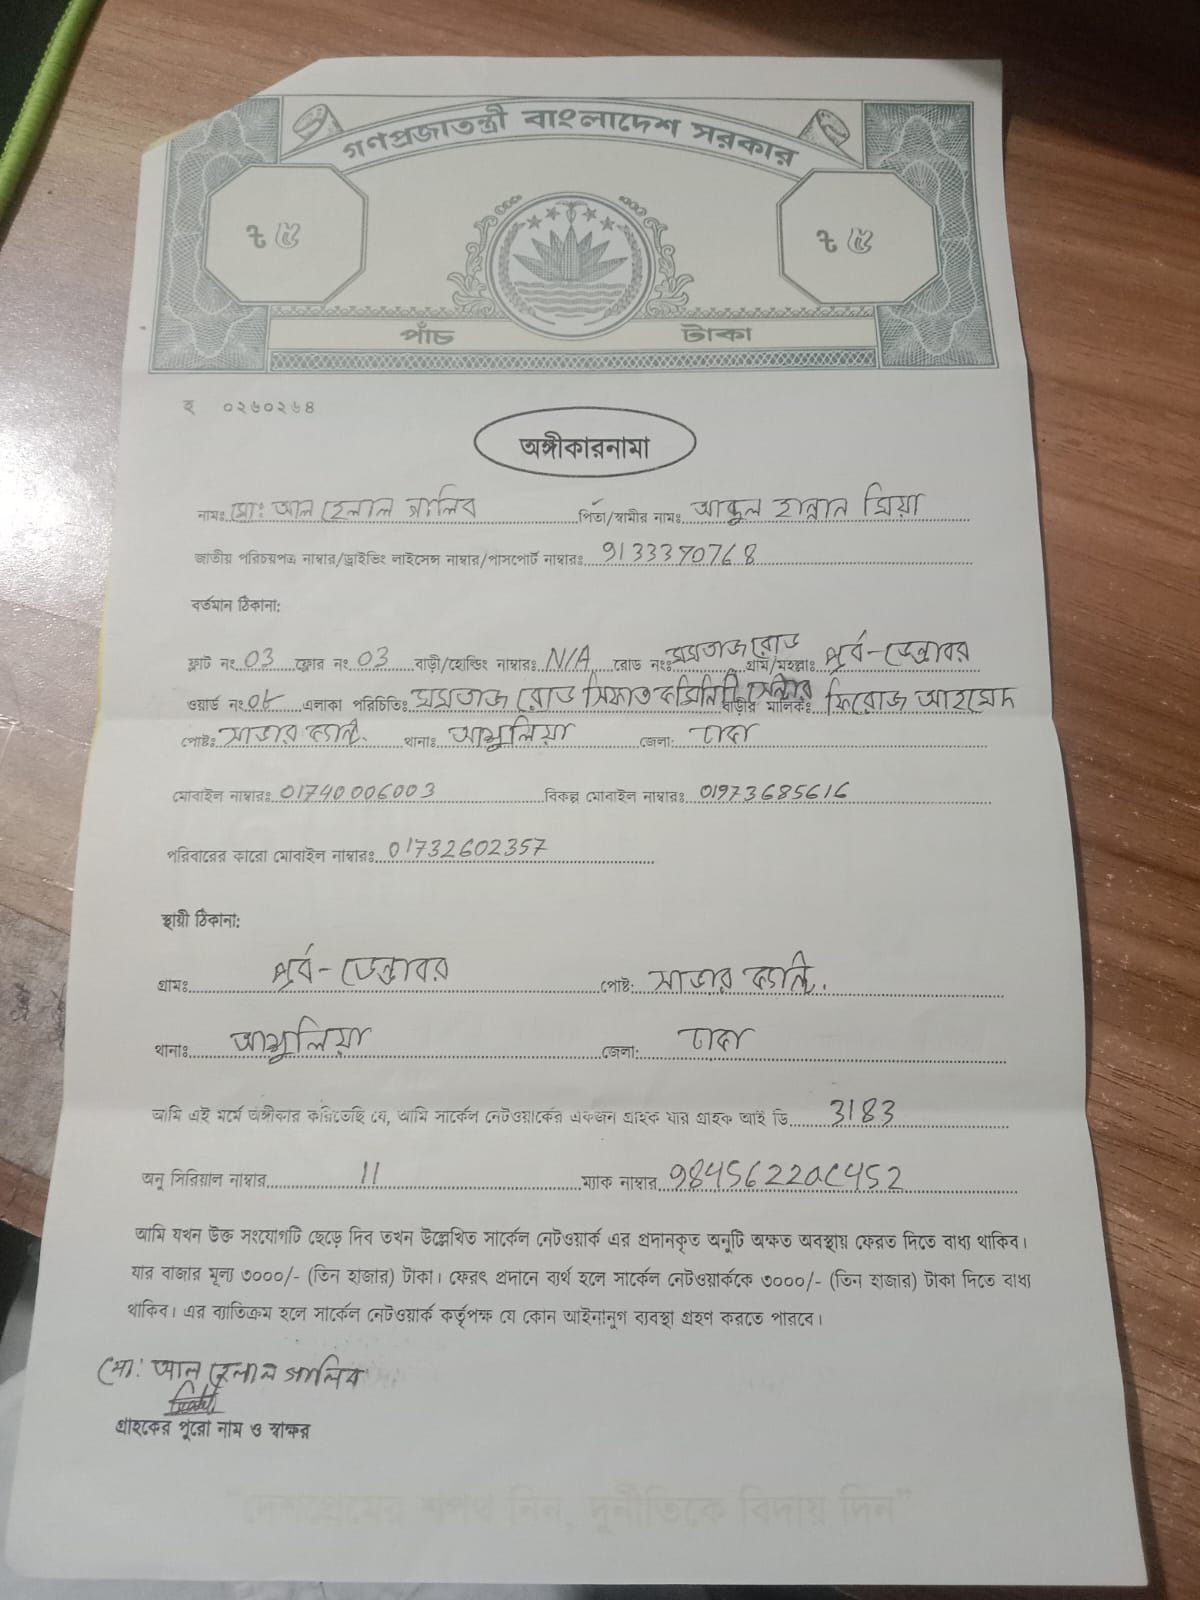 গণপ্রজাতন্ত্রী বাংলাদেশ সরকার
৳ ৫ ৳ ৫
পাঁচ টাকা
হ ০২৬০২৬৪
অঙ্গীকারনামা
নামঃ মোঃ আল হেলাল গালিব পিতা/স্বামীর নামঃ আব্দুল হান্নান মিয়া
জাতীয় পরিচয়পত্র নাম্বার/ড্রাইভিং লাইসেন্স নাম্বার/পাসপোর্ট নাম্বারঃ 9133370768
বর্তমান ঠিকানা:
ফ্লাট নং 03 ফ্লোর নং 03 বাড়ী/হোল্ডিং নাম্বারঃ N/A রোড নংঃ মমতাজ রোড গ্রাম/মহল্লাঃ পূর্ব-ডেন্ডাবর
ওয়ার্ড নং 08 এলাকা পরিচিতিঃ মমতাজ রোড সিফাত কমিনিটি সেন্টার বাড়ীর মালিকঃ ফিরোজ আহমেদ
পোষ্টঃ সাভার ক্যান্ট. থানাঃ আশুলিয়া জেলা: ঢাকা
মোবাইল নাম্বারঃ 01740006003 বিকল্প মোবাইল নাম্বারঃ 01973685616
পরিবারের কারো মোবাইল নাম্বারঃ 01732602357
স্থায়ী ঠিকানা:
গ্রামঃ পূর্ব-ডেন্ডাবর পোষ্ট: সাভার ক্যান্ট.
থানাঃ আশুলিয়া জেলা: ঢাকা
আমি এই মর্মে অঙ্গীকার করিতেছি যে, আমি সার্কেল নেটওয়ার্কের একজন গ্রাহক যার গ্রাহক আই ডি 3183
অনু সিরিয়াল নাম্বার 11 ম্যাক নাম্বার 98456220C452
আমি যখন উক্ত সংযোগটি ছেড়ে দিব তখন উল্লেখিত সার্কেল নেটওয়ার্ক এর প্রদানকৃত অনুটি অক্ষত অবস্থায় ফেরত দিতে বাধ্য থাকিব।
যার বাজার মূল্য ৩০০০/- (তিন হাজার) টাকা। ফেরৎ প্রদানে ব্যর্থ হলে সার্কেল নেটওয়ার্ককে ৩০০০/- (তিন হাজার) টাকা দিতে বাধ্য
থাকিব। এর ব্যাতিক্রম হলে সার্কেল নেটওয়ার্ক কর্তৃপক্ষ যে কোন আইনানুগ ব্যবস্থা গ্রহণ করতে পারবে।
মো: আল হেলাল গালিব
গ্রাহকের পুরো নাম ও স্বাক্ষর
"দেশপ্রেমের শপথ নিন, দুর্নীতিকে বিদায় দিন"